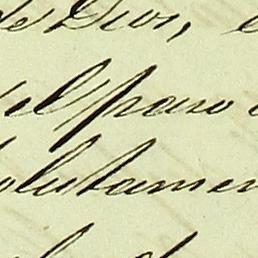 de Dios,
el paso
olutamen